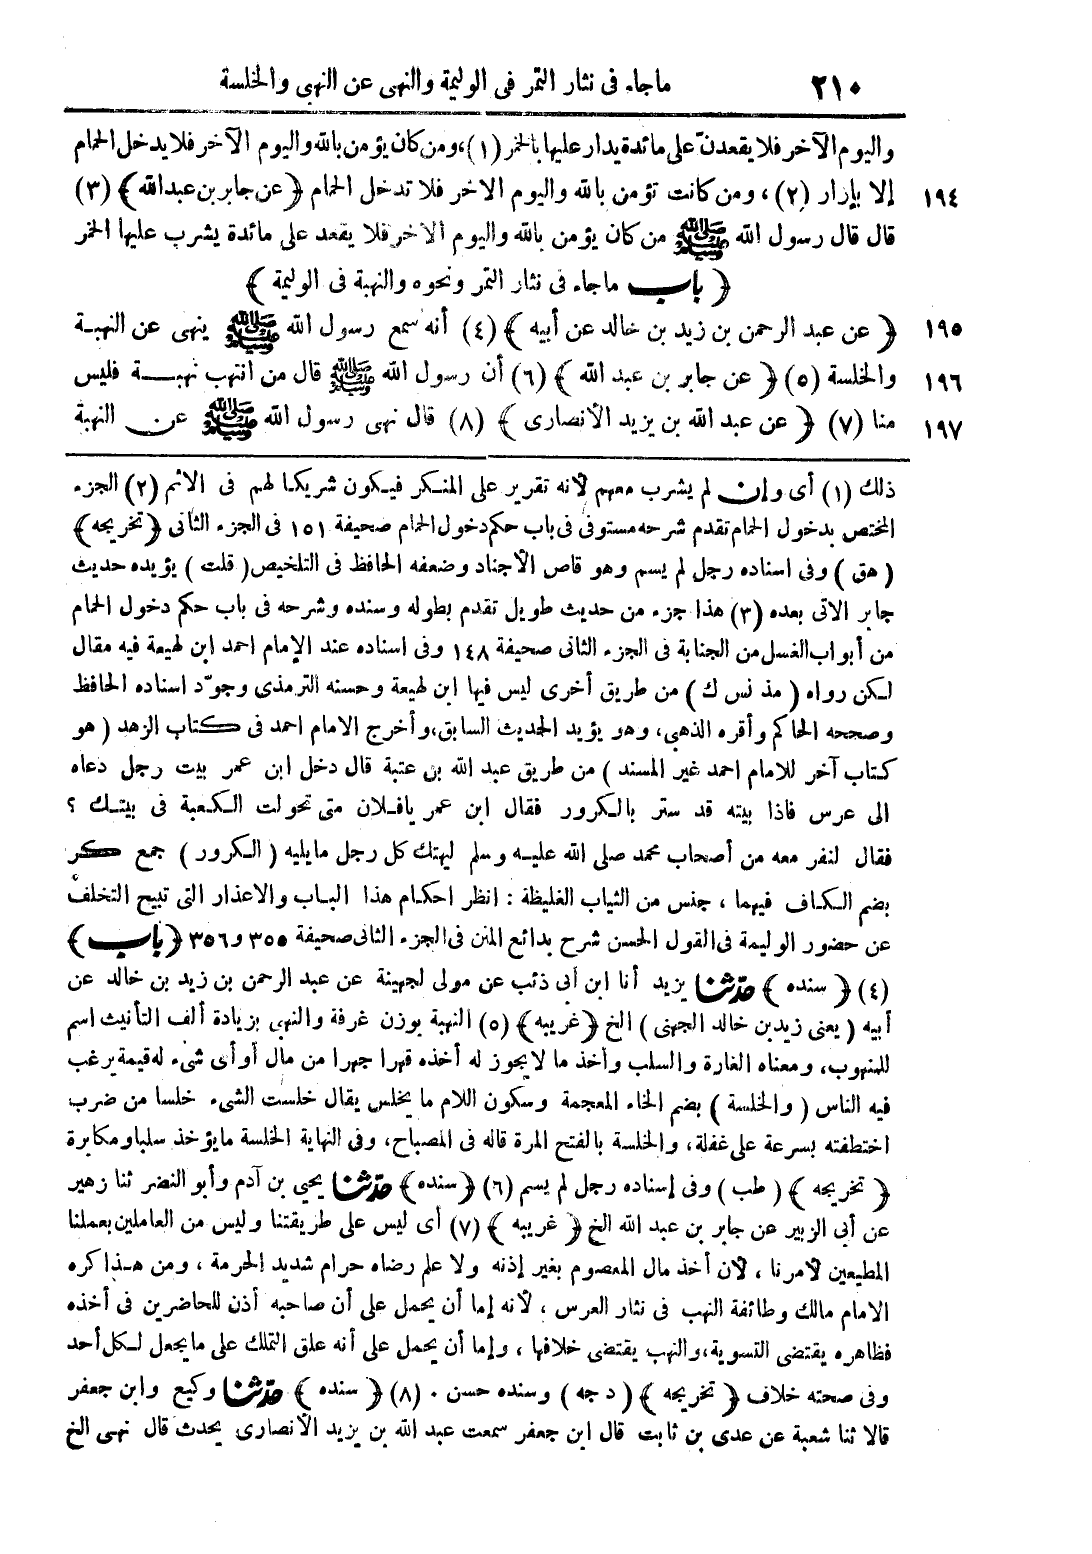 ٢١٠ ماجاء فى نثار التمر فى الوليمة والنهى عن النهبى والخلسة
واليوم الآخر فلا يقعدنّ على مائدة يدار عليها بالخمر (١)، ومن كان يؤمن بالله واليوم الآخر فلا يدخل الحمام
١٩٤ إلا بإزار (٢)، ومن كانت تؤمن بالله واليوم الاخر فلا تدخل الحمام ﴿ عن جابر بن عبد الله ﴾ (٣)
قال قال رسول الله ﷺ من كان يؤمن بالله واليوم الاخر فلا يقعد على مائدة يشرب عليها الخمر
﴿ باب ماجاء فى نثار التمر ونحوه والنهبة فى الوليمة ﴾
١٩٥ ﴿ عن عبد الرحمن بن زيد بن خالد عن أبيه ﴾ (٤) أنه سمع رسول الله ﷺ ينهى عن النهبة
١٩٦ والخلسة (٥) ﴿ عن جابر بن عبد الله ﴾ (٦) أن رسول الله ﷺ قال من انتهب نهبة فليس
١٩٧ منا (٧) ﴿ عن عبد الله بن يزيد الأنصارى ﴾ (٨) قال نهى رسول الله ﷺ عن النهبة
ذلك (١) أى وإن لم يشرب معهم لأنه تقرير على المنكر فيكون شريكا لهم فى الاثم (٢) الجزء
المختص بدخول الحمام تقدم شرحه مستوفى فى باب حكم دخول الحمام صحيفة ١٥١ فى الجزء الثانى ﴿ تخريجه ﴾
( هق ) وفى اسناده رجل لم يسم وهو قاص الأجناد وضعفه الحافظ فى التلخيص ( قلت ) يؤيده حديث
جابر الاتى بعده (٣) هذا جزء من حديث طويل تقدم بطوله وسنده وشرحه فى باب حكم دخول الحمام
من أبواب الغسل من الجنابة فى الجزء الثانى صحيفة ١٤٨ وفى اسناده عند الإمام احمد ابن لهيعة فيه مقال
لكن رواه ( مذ نس ك ) من طريق أخرى ليس فيها ابن لهيعة وحسنه الترمذى وجوّد اسناده الحافظ
وصححه الحاكم وأقره الذهبى، وهو يؤيد الحديث السابق، وأخرج الامام احمد فى كتاب الزهد ( هو
كتاب آخر للامام احمد غير المسند ) من طريق عبد الله بن عتبة قال دخل ابن عمر بيت رجل دعاه
الى عرس فاذا بيته قد ستر بالكرور فقال ابن عمر يافلان متى تحولت الكعبة فى بيتك ؟
فقال لنفر معه من أصحاب محمد صلى الله عليه وسلم ليهتك كل رجل مايليه ( الكرور ) جمع كر
بضم الكاف فيهما ، جنس من الثياب الغليظة : انظر احكام هذا الباب والاعذار التى تبيح التخلف
عن حضور الوليمة فى القول الحسن شرح بدائع المنن فى الجزء الثانى صحيفة ٣٥٥ و٣٥٦ ﴿ باب ﴾
(٤) ﴿ سنده ﴾ حدّثنا يزيد أنا ابن أبى ذئب عن مولى لجهينة عن عبد الرحمن بن زيد بن خالد عن
أبيه ( يعنى زيد بن خالد الجهنى ) الخ ﴿ غريبه ﴾ (٥) النهبة بوزن غرفة والنهبى بزيادة ألف التأنيث اسم
للمنهوب، ومعناه الغارة والسلب وأخذ ما لايجوز له أخذه قهرا جهرا من مال أو أى شىء له قيمة يرغب
فيه الناس ( والخلسة ) بضم الخاء المعجمة وسكون اللام ما يخلس يقال خلست الشىء خلسا من ضرب
اختطفته بسرعة على غفلة، والخلسة بالفتح المرة قاله فى المصباح، وفى النهاية الخلسة مايؤخذ سلبا ومكابرة
﴿ تخريجه ﴾ ( طب ) وفى إسناده رجل لم يسم (٦) ﴿ سنده ﴾ حدّثنا يحيى بن آدم وأبو النضر ثنا زهير
عن أبى الزبير عن جابر بن عبد الله الخ ﴿ غريبه ﴾ (٧) أى ليس على طريقتنا وليس من العاملين بعملنا
المطيعين لأمرنا ، لأن أخذ مال المعصوم بغير إذنه ولا علم رضاه حرام شديد الحرمة ، ومن هذا كره
الامام مالك وطائفة النهب فى نثار العرس ، لأنه إما أن يحمل على أن صاحبه أذن للحاضرين فى أخذه
فظاهره يقتضى التسوية، والنهب يقتضى خلافها ، وإما أن يحمل على أنه علق التملك على مايجعل لكل أحد
وفى صحته خلاف ﴿ تخريجه ﴾ ( د جه ) وسنده حسن . (٨) ﴿ سنده ﴾ حدّثنا وكيع وابن جعفر
قالا ثنا شعبة عن عدى بن ثابت قال ابن جعفر سمعت عبد الله بن يزيد الأنصارى يحدث قال نهى الخ